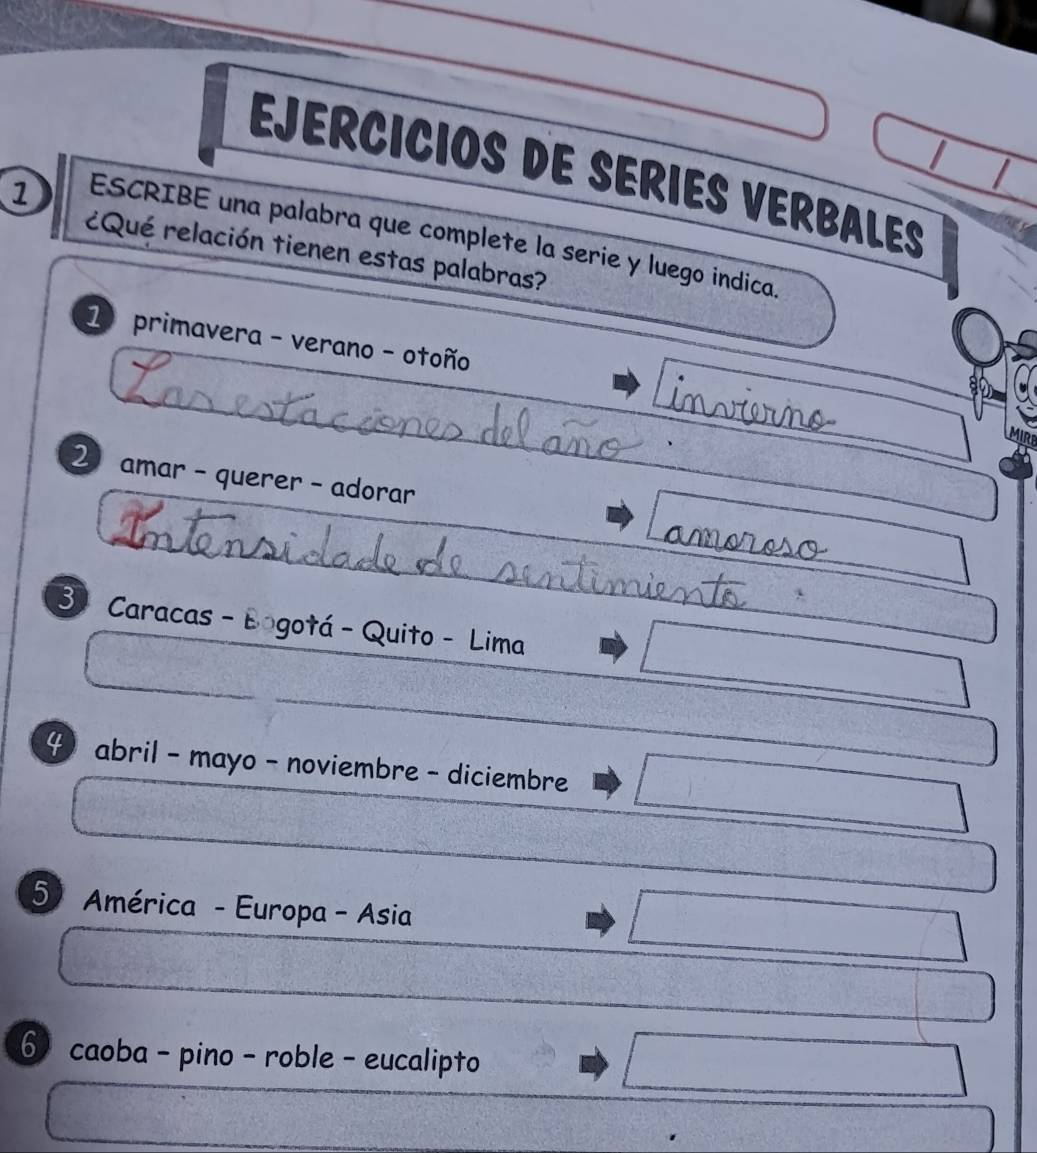 EJERCICIOS DE SERIES VERBALES
1 ESCRIBE una palabra que complete la serie y luego indica.
¿Qué relación tienen estas palabras?
1 primavera - verano - otoño
invierno
Las estaciones del año.
MIRE
2 amar - querer - adorar
amoroso
Intensidade de sentimiento.
3 Caracas - Bogotá - Quito - Lima
4 abril - mayo - noviembre - diciembre
5 América - Europa - Asia
6 caoba - pino - roble - eucalipto